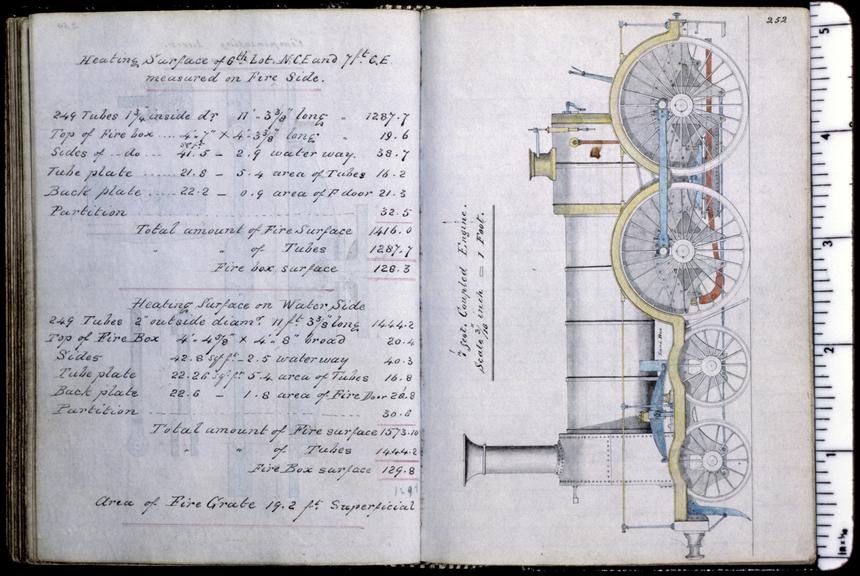 Heating Surface of 6th Lot. N.C.E and 7ft C.E.
measured on Fire Side.
249 Tubes 1 3/4" inside dr 11'-3 3/8" long " 1287.7
Top of Fire box .... 4'-7" × 4'-3 3/8" long " 19.6
Sides of .. do ... 41.5 - 2.9 water way. 38.7
Tube plate ........ 21.8 - 5.4 area of Tubes 16.2
Back plate ....... 22.2 - 0.9 area of F. door 21.3
Partition 32.5
Total amount of Fire Surface 1416.0
" of Tubes 1287.7
Fire box surface 128.3
Heating Surface on Water Side
249 Tubes 2" outside diamr. 11 ft 3 3/8 long 1444.2
Top of Fire Box 4'-4 5/8" × 4'-8" broad 20.4
Sides 42.8 sq ft - 2.5 water way 40.3
Tube plate 22.26 sq ft 5.4 area of Tubes 16.8
Back plate 22.6 - 1.8 area of Fire Door
Partition 30.6
Total amount of Fire surface 1573.10
" " of Tubes 1444.2
Fire Box surface 129.8
Area of Fire Grate 19.2 ft Superficial
252
7 foot. Coupled Engine.
Scale 3/16 inch = 1 Foot.
5
4
3
2
1
Inches